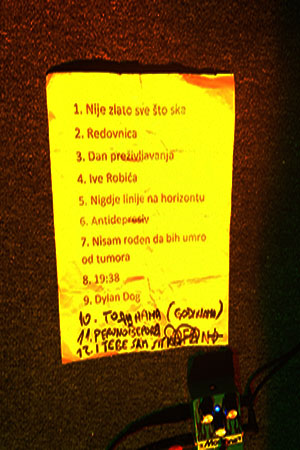 1. Nije zlato sve što ska
2. Redovnica
3. Dan preživljavanja
4. Ive Robića
5. Nigdje linije na horizontu
6. Antidepresiv
7. Nisam rođen da bih umro
od tumora
8. 19:38
9. Dylan Dog
10. ТОДИНАМА (GODINAMA)
11.
12. I TEBE SAM SIT